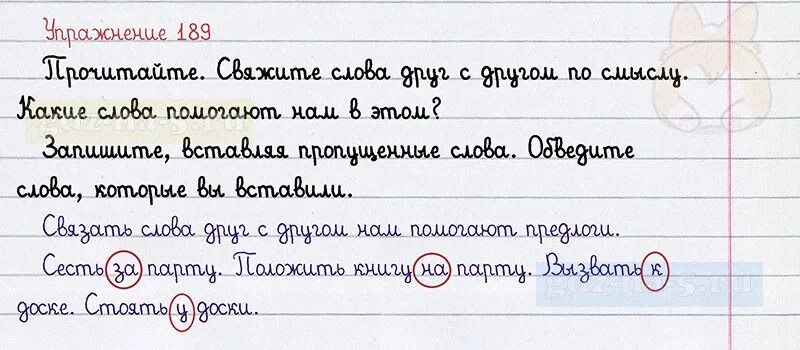 Упражнение 189
Прочитайте. Свяжите слова друг с другом по смыслу.
Какие слова помогают нам в этом?
Запишите, вставляя пропущенные слова. Обведите
слова, которые вы вставили.
Связать слова друг с другом нам помогают предлоги.
Сесть за парту. Положить книгу на парту. Вызвать к
доске. Стоять у доски.